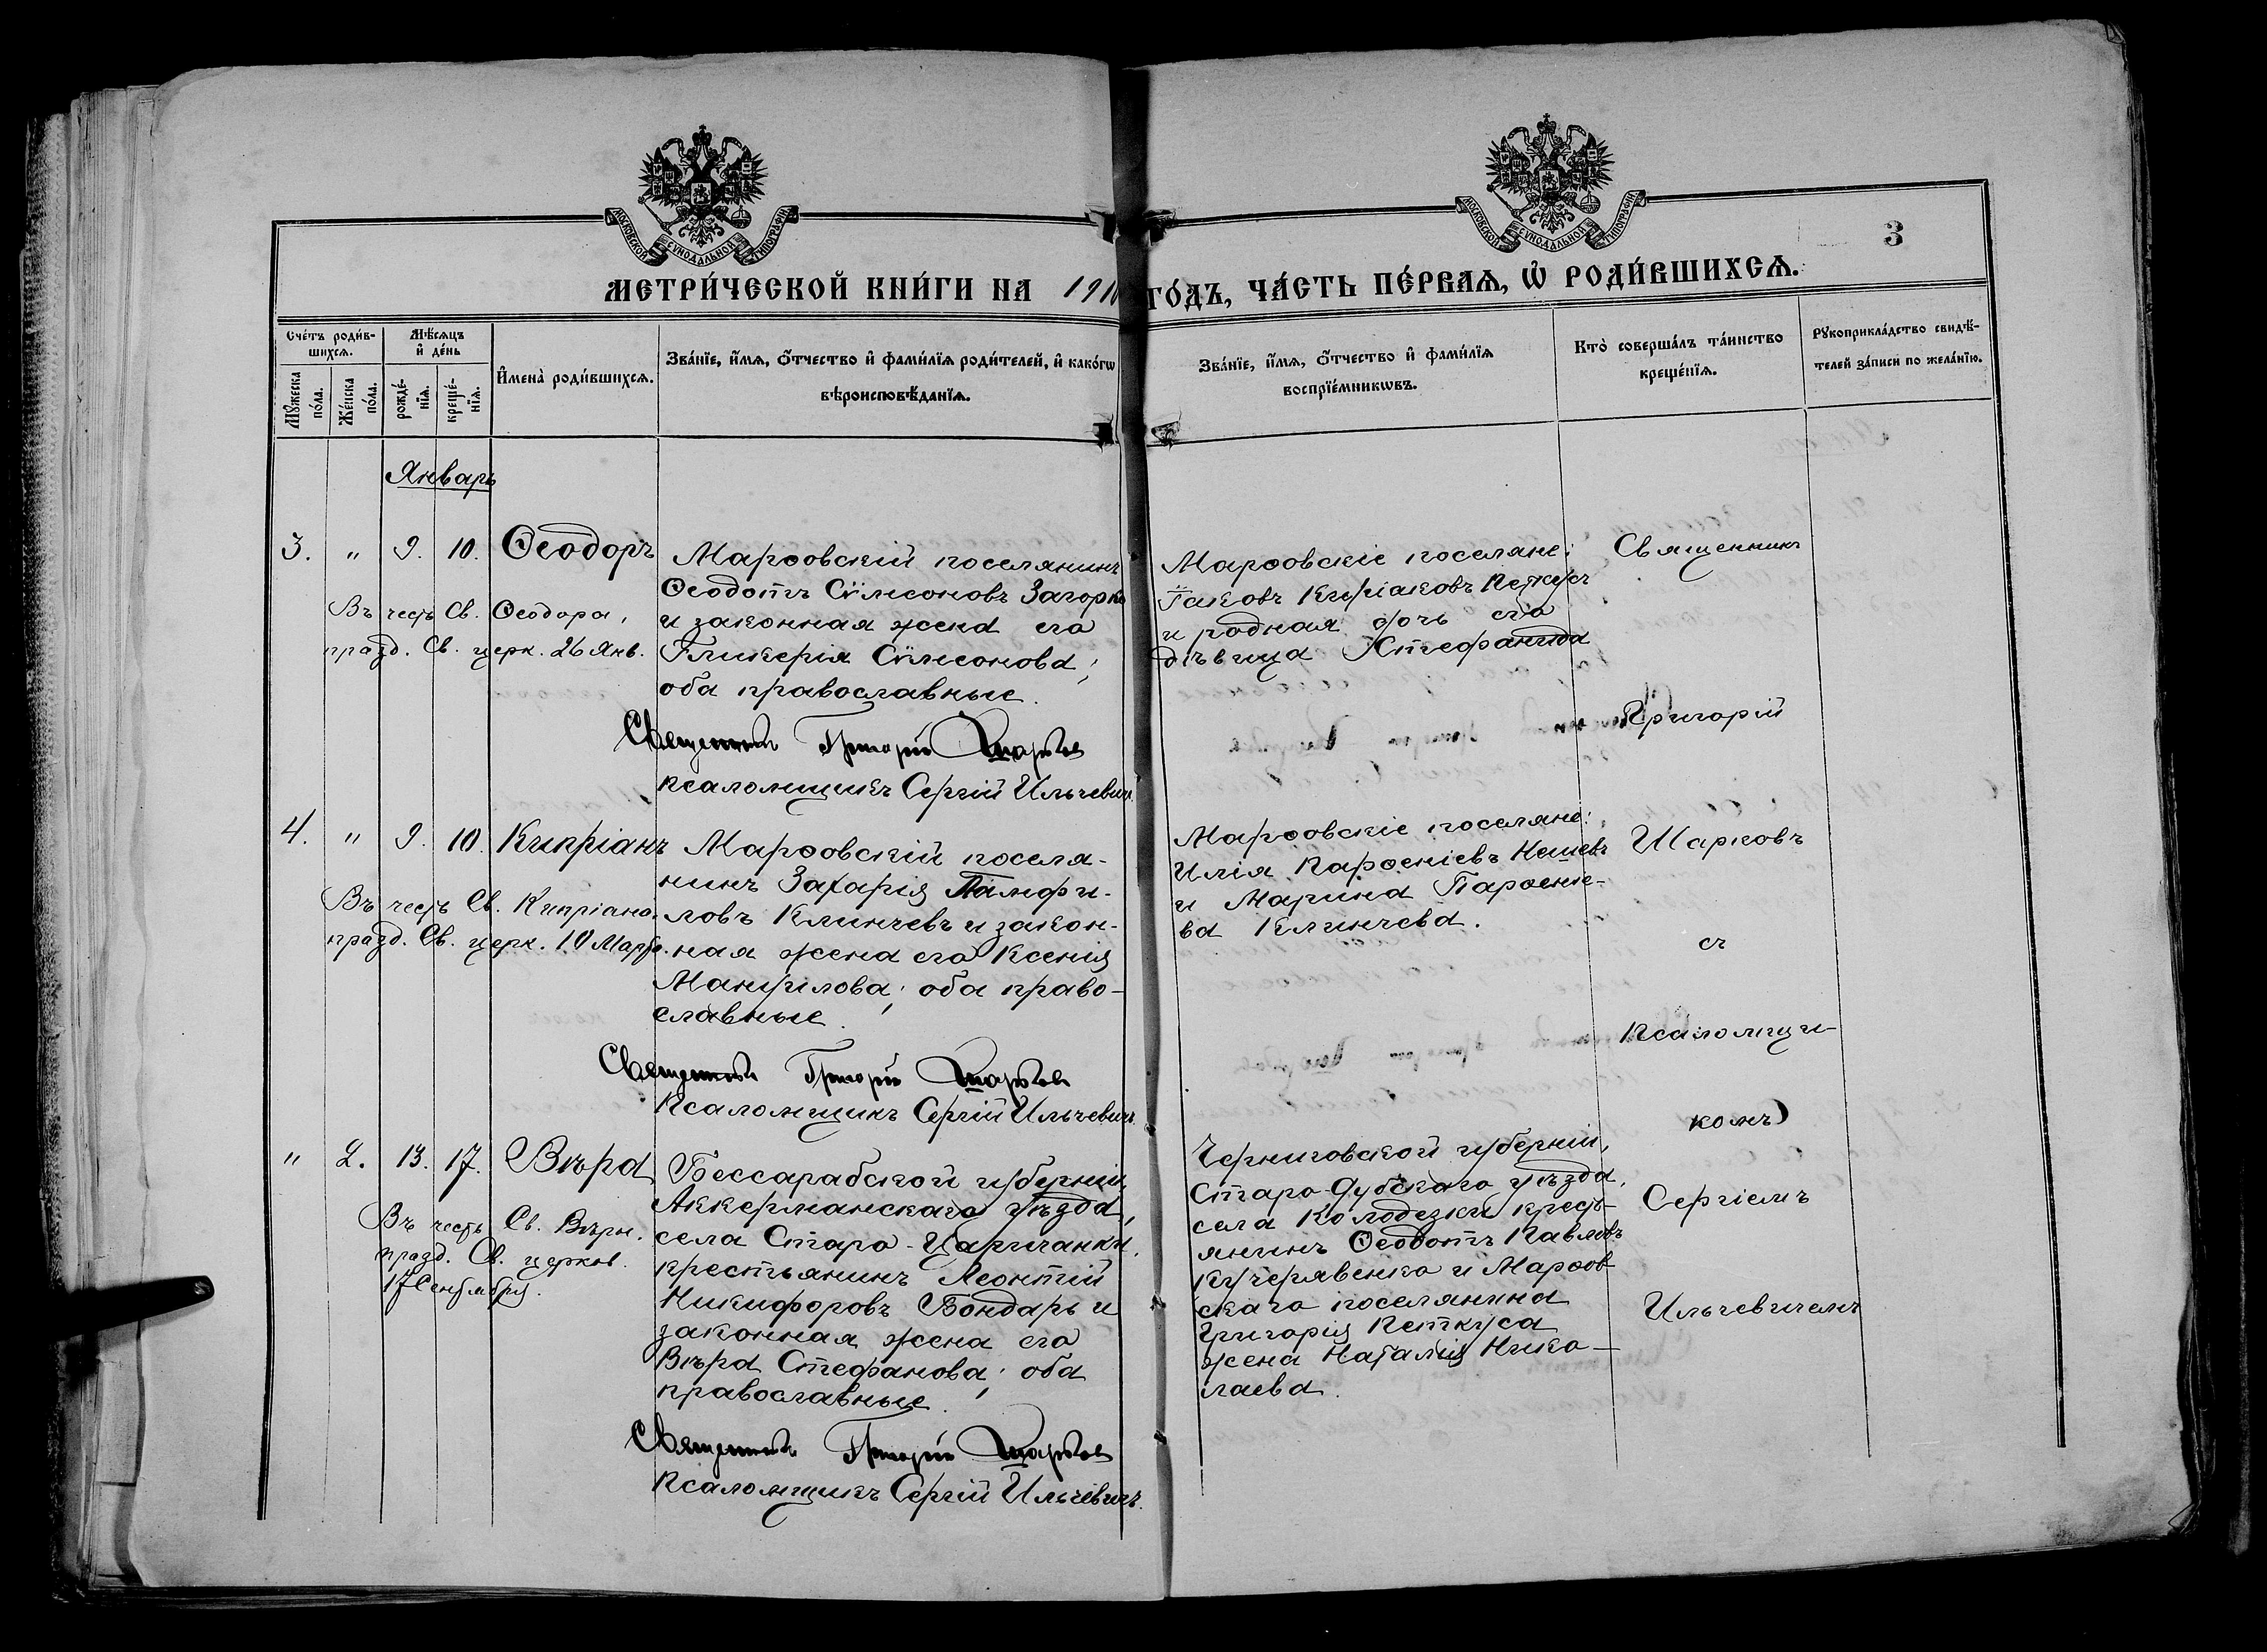 МОСКОВСКОЙ СѴНОДАЛЬНОЙ ТИПОГРАФІИ
МОСКОВСКОЙ СѴНОДАЛЬНОЙ ТИПОГРАФІИ
3
МЕТРИ́ЧЕСКОЙ КНИ́ГИ НА 191 ГО́ДЪ, ЧА́СТЬ ПЕ́РВАѦ, Ѡ҆ РОДИ́ВШИХСѦ.
Сче́тъ роди́в-
шихсѧ.
Мꙋ́жеска
по́ла.
Же́нска
по́ла.
Мѣ́сѧцъ
и҆ де́нь
рожде́-
нїѧ.
креще́-
нїѧ.
И҆мена̀ роди́вшихсѧ.
Зва́нїе, и҆́мѧ, ѻ҆́тчество и҆ фами́лїѧ роди́телей, и҆ како́гѡ
вѣроисповѣ́данїѧ.
Зва́нїе, и҆́мѧ, ѻ҆́тчество и҆ фами́лїѧ
воспрїе́мникѡвъ.
Кто̀ соверша́лъ та́инство
креще́нїѧ.
Рꙋкоприкла́дство свидѣ́-
телей за́писи по жела́нїю.
Январь
3. " 9. 10. Ѳеодоръ
Въ честь Св. Ѳеодора,
празд. Св. церк. 26 Янв.
Марѳовскій поселянинъ
Ѳеодотъ Сѵмеоновъ Загорко
и законная жена его
Гликерія Сѵмеонова;
оба православные.
Священникъ Григорій Шарковъ
Псаломщикъ Сергій Ильчевичъ.
Марѳовскіе поселяне:
Іаковъ Киріаковъ Петкусъ
и родная дочь его
дѣвица Стефанида
Священникъ
Григорій
4. " 9. 10. Кипріанъ
Въ честь Св. Кипріана
празд. Св. церк. 10 Марта.
Марѳовскій поселя-
нинъ Захарія Памфи-
ловъ Клинчевъ и закон-
ная жена его Ксенія
оба право-
славные.
Священникъ Григорій Шарковъ
Псаломщикъ Сергій Ильчевичъ.
Марѳовскіе поселяне:
Илія Парѳеніевъ Нешевъ
и Марина Парѳеніе-
ва Клинчева.
Шарковъ
съ
Псаломщи-
комъ
" 2. 13. 17. Вѣра
Въ честь Св. Вѣры.
празд. Св. церков.
17 Сентября.
Бессарабской губерніи,
Аккерманскаго уѣзда,
села Старо-Царичанки,
крестьянинъ Леонтій
Никифоровъ Бондарь и
законная жена его
Вѣра Стефанова; оба
православные.
Священникъ Григорій Шарковъ
Псаломщикъ Сергій Ильчевичъ.
Черниговской губерніи,
Старо-Дубскаго уѣзда,
села Колодезки кресть-
янинъ Ѳеодотъ Павловъ
Кучерявенко и Марѳов
скаго поселянина
Григорія Петкуса
жена Наталія Нико-
лаева.
Сергіемъ
Ильчевичемъ